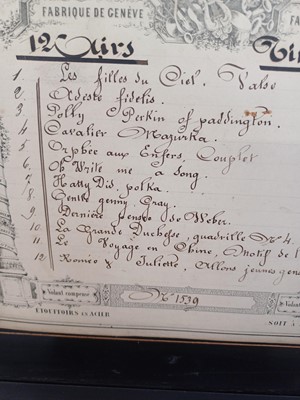 FABRIQUE DE GENÈVE
12 Airs
1. Les filles du Ciel. Valse
2 Adeste fidelis.
3. Polly Perkin of paddington.
4. Cavalier Mazurka.
5. Orphée aux Enfers, Couplet
6. Oh Write me a Song.
7. Hatty Did. polka.
8. Gentle genny Gray.
9. Dernière pensée de Weber.
10. La Grande Duchesse, quadrille No 4.
11. Le Voyage en Chine, Motif de l
12 Roméo & Juliette, Allons jeunes gens
Volant compensé
No 1539
ETOUFFOIRS EN ACIER